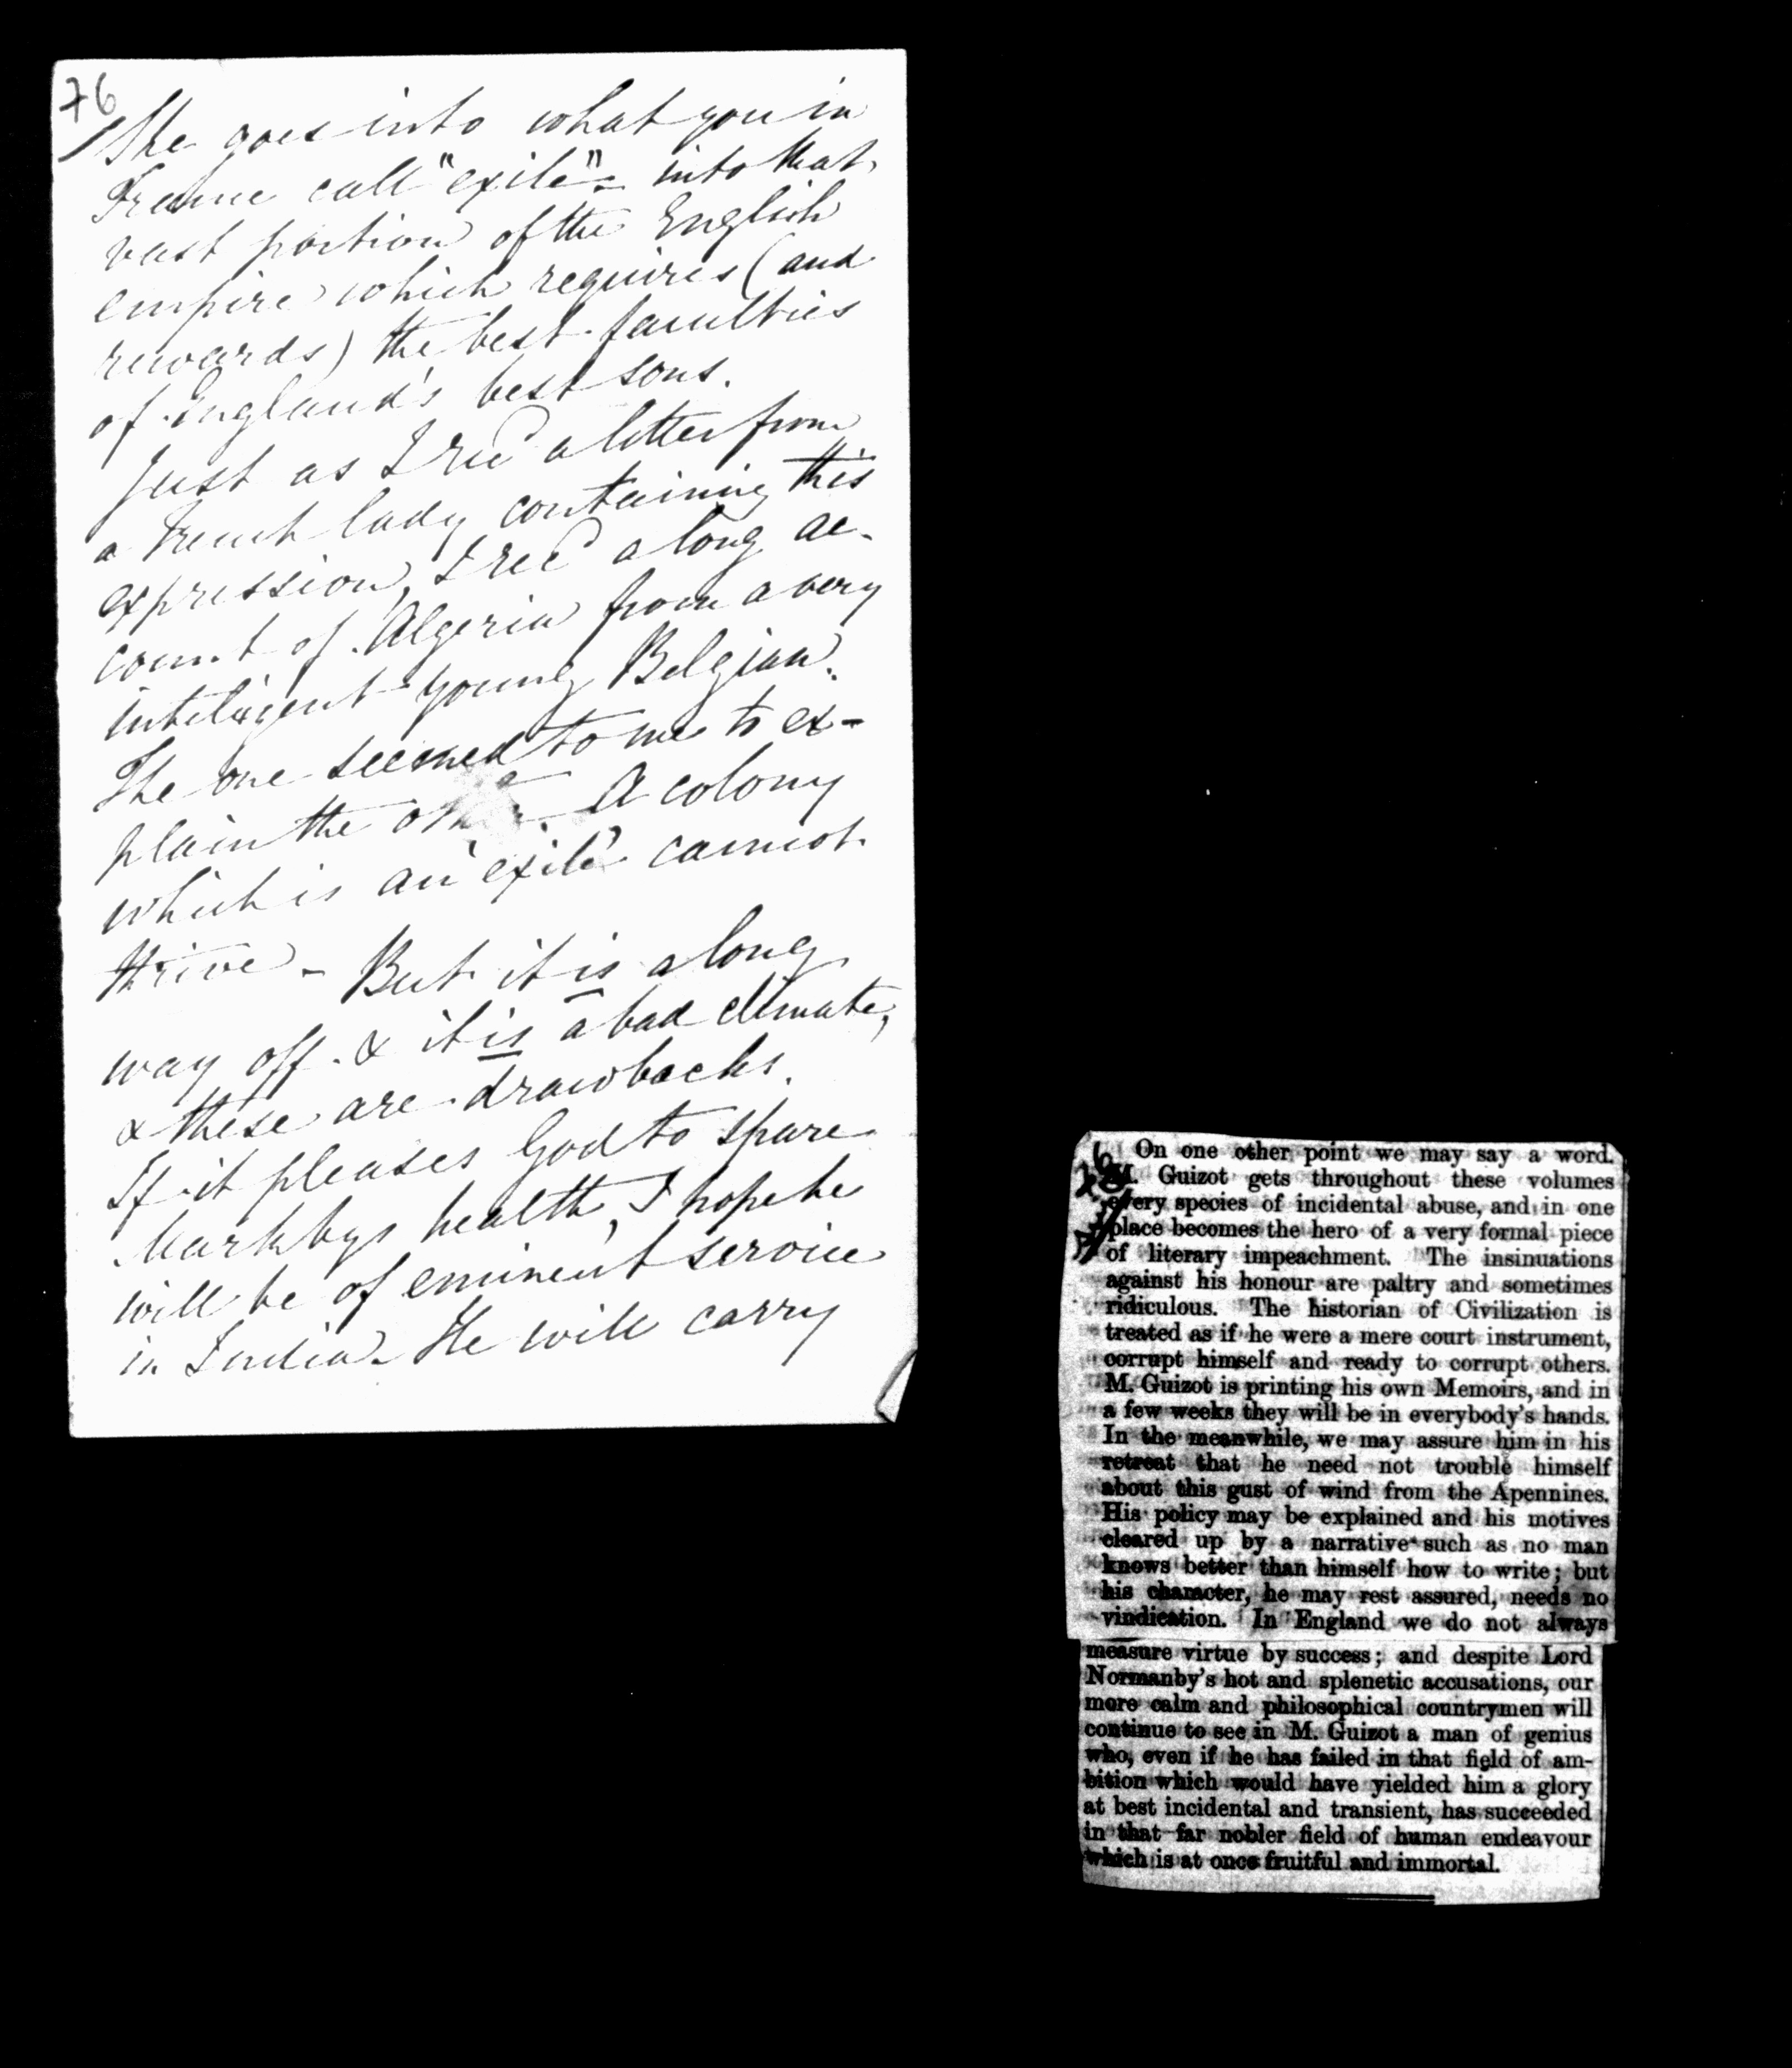 76
She goes into what you in
France call "exile" - into that
vast portion of the English
empire which requires (and
rewards) the best faculties
of England's best sons.
Just as I recd a letter from
a French lady containing this
expression, I recd a long ac-
count of Algeria from a very
inteligent young Belgian.
The one seemed to me to ex-
plain the - A colony
which is an "exile" cannot
thrive - But it is a long
way off. & it is a bad climate,
& these are drawbacks.
If it pleases God to spare
Markbys health, I hope he
will be of eminent service
in India - He will carry
On one other point we may say a word.
M. Guizot gets throughout these volumes
every species of incidental abuse, and in one
place becomes the hero of a very formal piece
of literary impeachment. The insinuations
against his honour are paltry and sometimes
ridiculous. The historian of Civilization is
treated as if he were a mere court instrument,
corrupt himself and ready to corrupt others.
M. Guizot is printing his own Memoirs, and in
a few weeks they will be in everybody's hands.
In the meanwhile, we may assure him in his
retreat that he need not trouble himself
about this gust of wind from the Apennines.
His policy may be explained and his motives
cleared up by a narrative such as no man
knows better than himself how to write; but
his character, he may rest assured, needs no
vindication. In England we do not always
measure virtue by success; and despite Lord
Normanby's hot and splenetic accusations, our
more calm and philosophical countrymen will
continue to see in M. Guizot a man of genius
who, even if he has failed in that field of am-
bition which would have yielded him a glory
at best incidental and transient, has succeeded
in that far nobler field of human endeavour
which is at once fruitful and immortal.